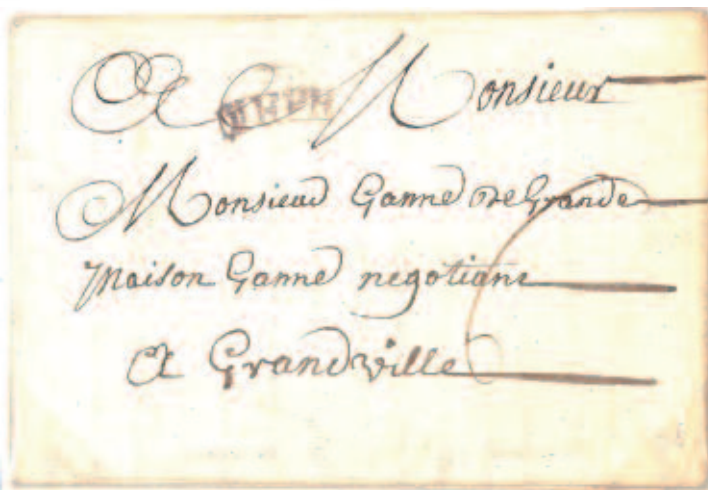 A Monsieur
Monsieur Ganne de Grande
Maison Ganne negotiant
A Grandville